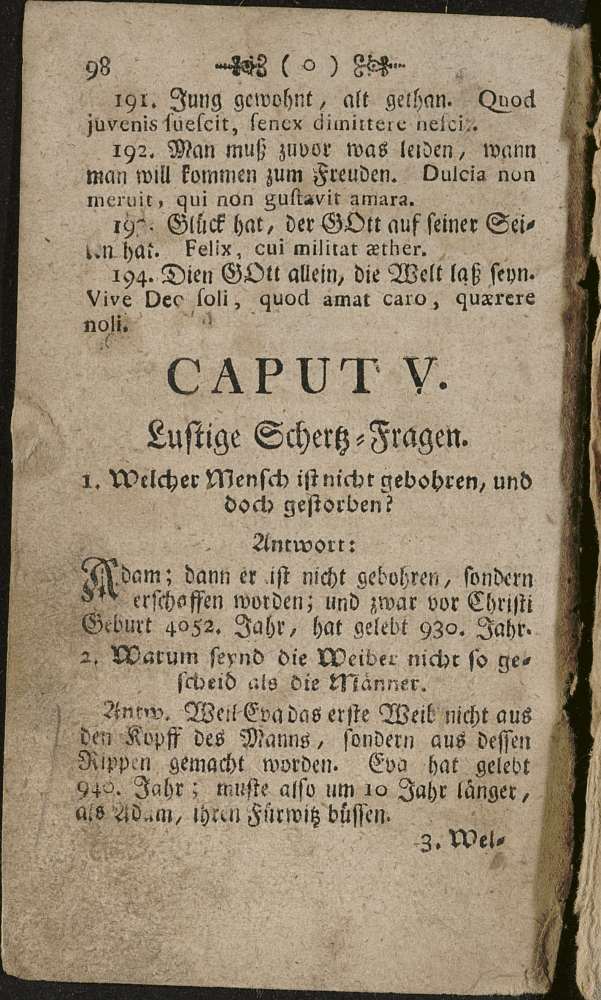 98 ( o )
191. Jung gewohnt, alt gethan. Quod
juvenis suescit, senex dimittere nesci.
192. Man muß zuvor was leiden, wann
man will kommen zum Freuden. Dulcia non
meruit, qui non gustavit amara.
Glück hat, der GOtt auf seiner Sei-
hat. Felix, cui militat æther.
194. Dien GOtt allein, die Welt laß seyn.
Vive Deo soli, quod amat caro, quærere
noli.
CAPUT V.
Lustige Schertz-Fragen.
1. Welcher Mensch ist nicht gebohren, und
doch gestorben?
Antwort:
Adam; dann er ist nicht gebohren, sondern
erschaffen worden; und zwar vor Christi
Geburt 4052. Jahr, hat gelebt 930. Jahr.
2. Warum seynd die Weiber nicht so ge-
scheid als die Männer.
Antw. Weil Eva das erste Weib nicht aus
den Kopff des Manns, sondern aus dessen
Rippen gemacht worden. Eva hat gelebt
940. Jahr; muste also um 10 Jahr länger,
als Adam, ihren Fürwitz büssen.
3. Wel-